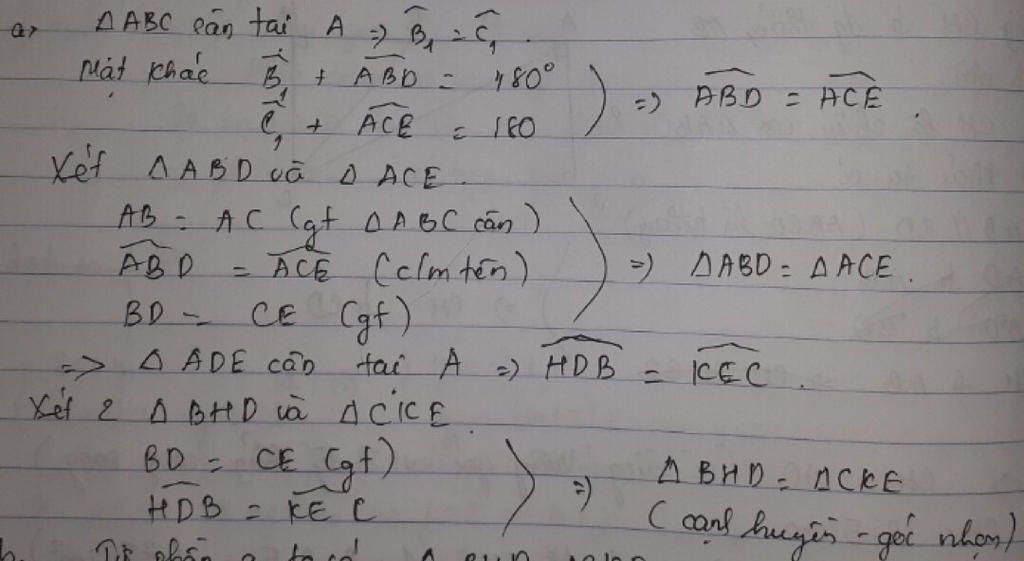 a, ΔABC cân tai A => B̂₁ = Ĉ₁.
Mặt khác B̂₁ + ABD̂ = 180°
Ĉ₁ + ACÊ = 180
=> ABD̂ = ACÊ.
Xét ΔABD và ΔACE.
AB = AC (gt ΔABC cân)
ABD̂ = ACÊ (c/m tên)
BD = CE (gt)
=> ΔABD = ΔACE.
=> ΔADE cân tai A => HDB̂ = KEĈ.
Xét 2 ΔBHD và ΔCKE
BD = CE (gt)
HDB̂ = KEĈ
=> ΔBHD = ΔCKE
(cạnh huyền - góc nhọn)